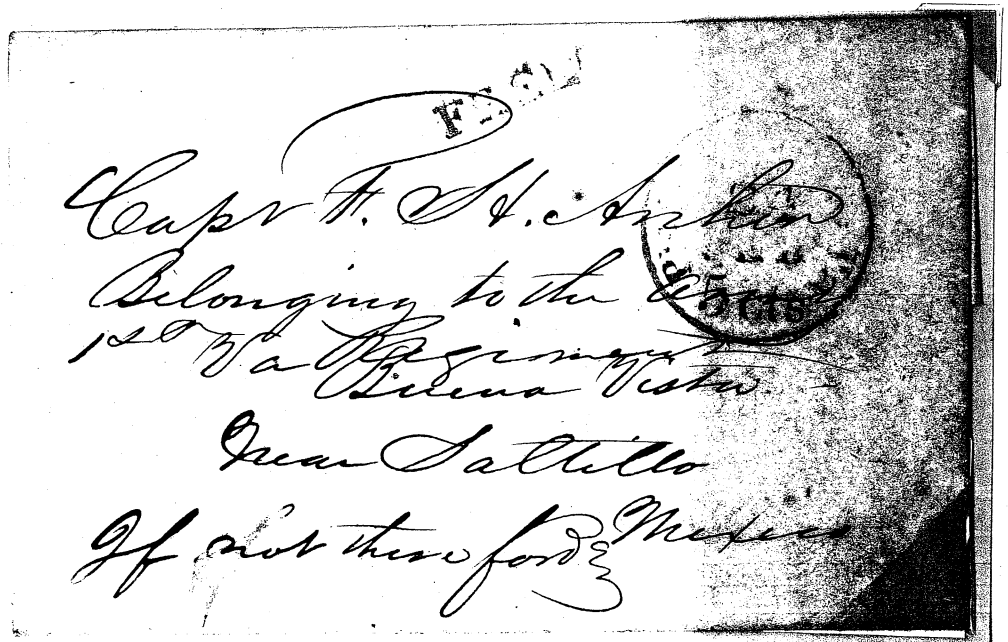 Capt F. H. Archer
Belonging to the
1st Va Regiment
Buena Vista
Near Saltillo
Mexico
If not there ford
5 Cts